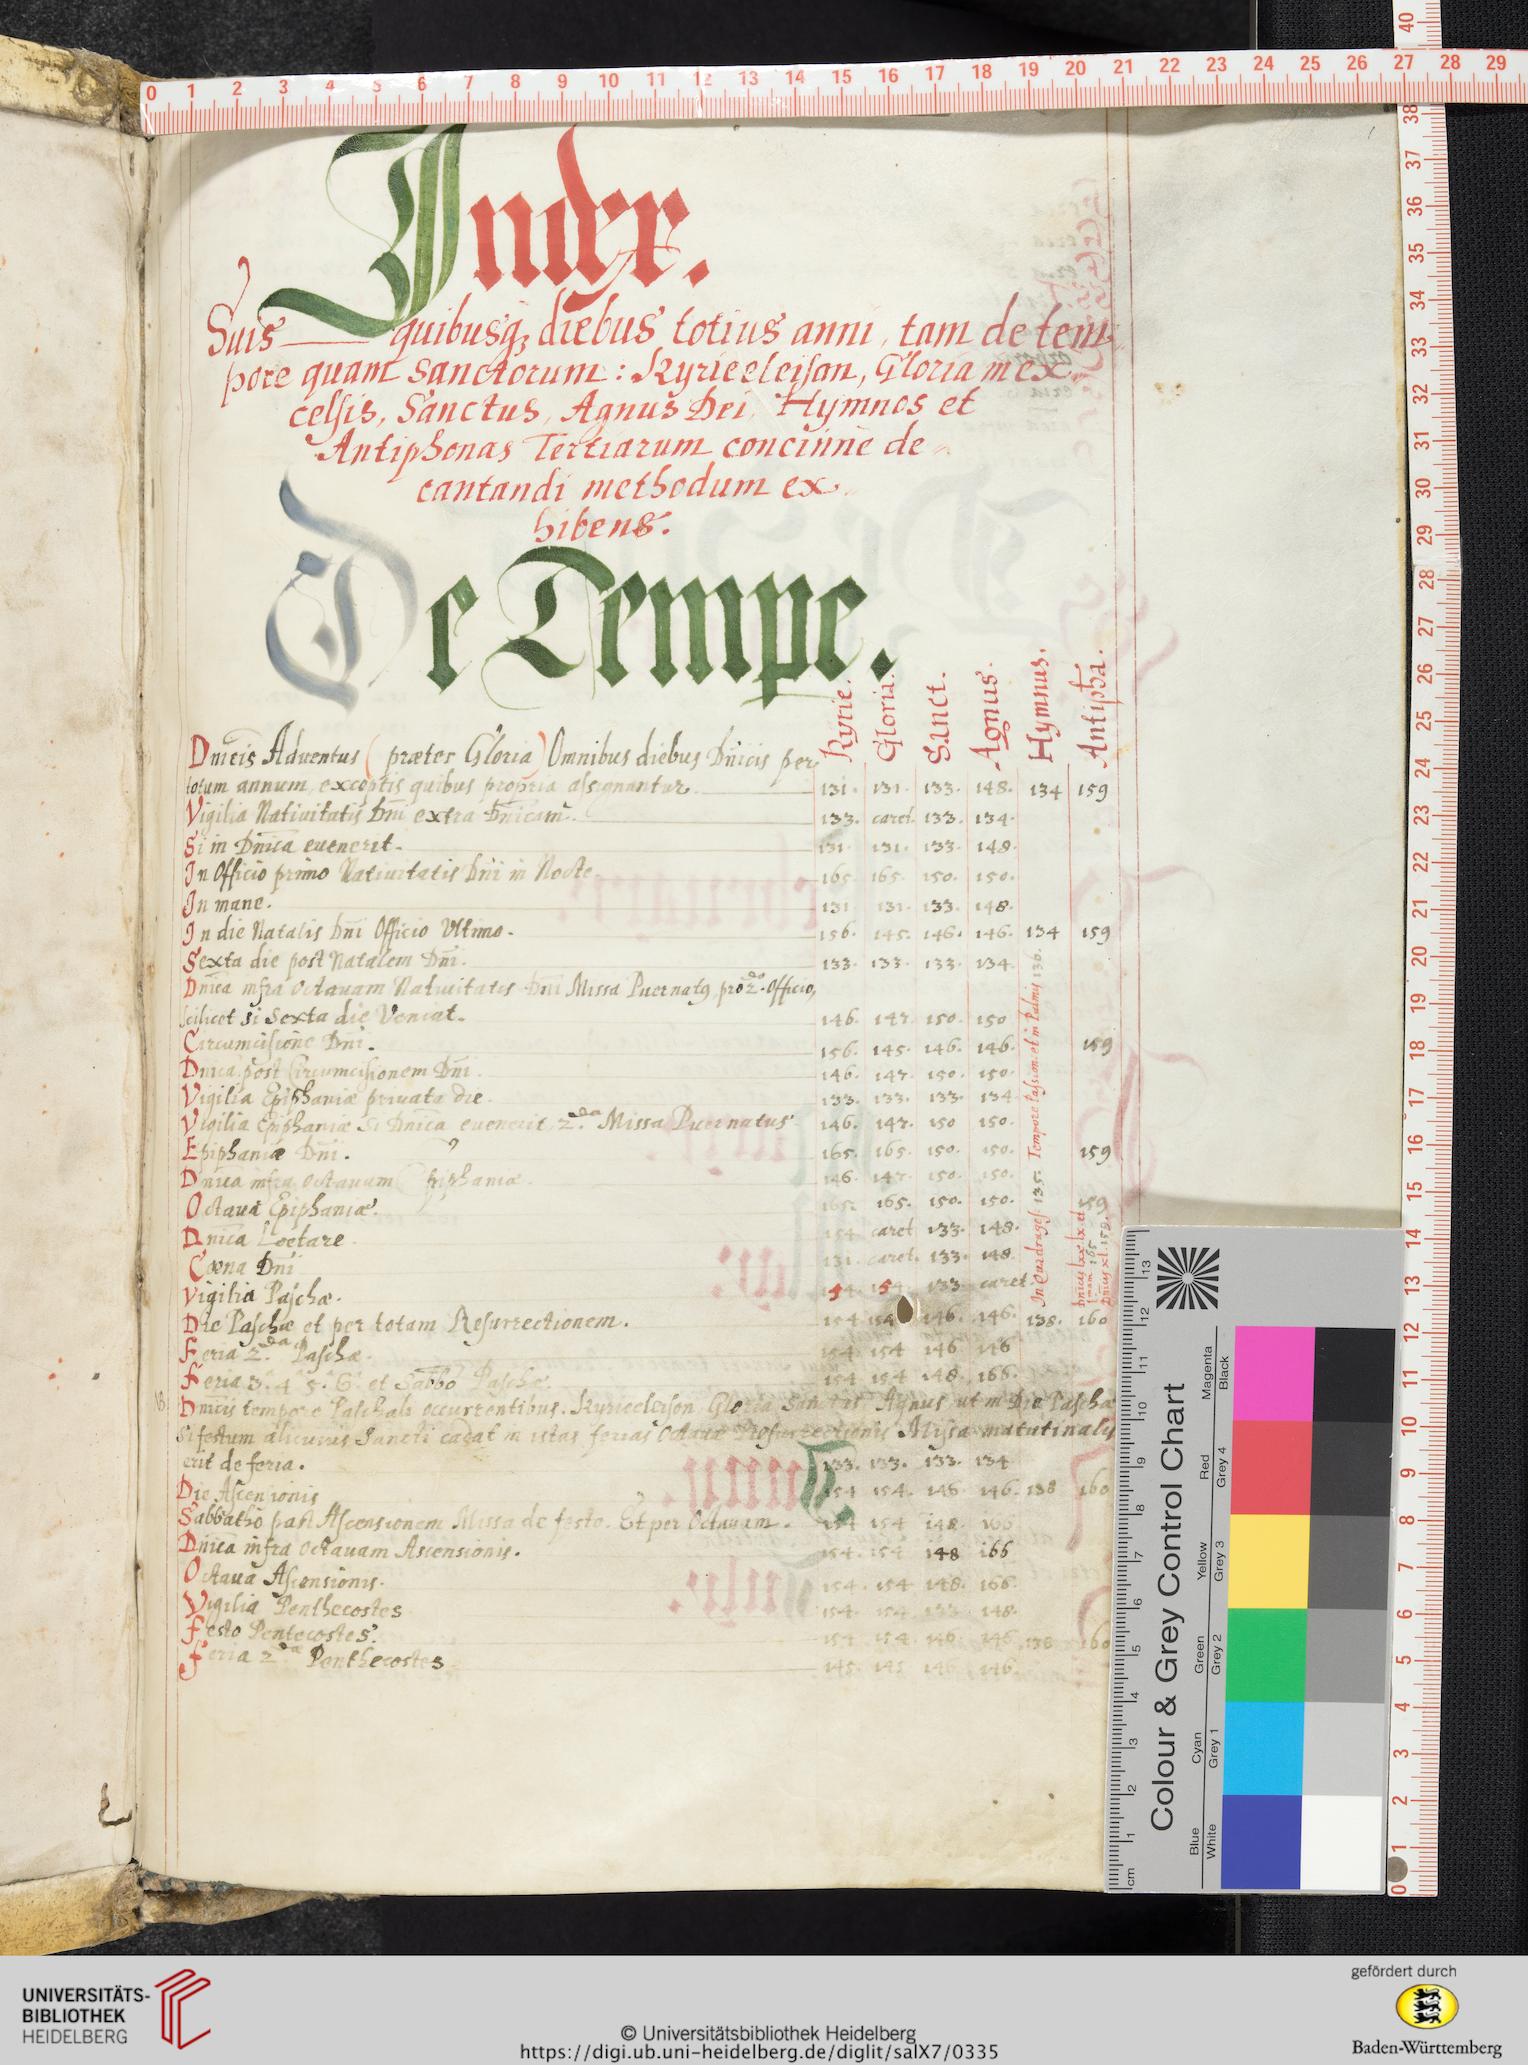 Index.
Suis quibusq; diebus totius anni, tam de tem
pore quam Sanctorum: Kyrie eleison, Gloria in ex
celsis, Sanctus, Agnus Dei, Hymnos et
Antiphonas Tertiarum concinne de
cantandi methodum ex
hibens.
De Tempe.
Kyrie. Gloria. Sanct. Agnus. Hymnus. Antipha.
Dnicis Adventus (præter Gloria) Omnibus diebus Dnicis per
totum annum, exceptis quibus propria assignantur. 131. 131. 133. 148. 134 159
Vigilia Nativitatis Dni extra Dnicam. 133. caret. 133. 134.
Si in Dnica evenerit. 131. 131. 133. 148.
In Officio primo Nativitatis Dni in Nocte. 165. 165. 150. 150.
In mane. 131 131. 133. 148.
In die Natalis Dni Officio Ultimo. 156. 145. 146. 146. 134 159
Sexta die post Natalem Dni. 133. 133. 133. 134.
Dnica infra Octavam Nativitatis Dni Missa Puer natq, pro 2.do Officio,
scilicet si Sexta die Veniat. 146. 147. 150. 150
Circumcisione Dni. 156. 145. 146. 146. 159
Dnica post Circumcisionem Dni. 146. 147. 150. 150.
Vigilia Epiphaniæ privata die. 133. 133. 133. 134
Vigilia Epiphaniæ Si Dnica evenerit, 2.da Missa Puer natus 146. 147. 150 150.
Epiphaniæ Dni. 165. 165. 150. 150. 159
Dnica infra Octavam Epiphaniæ. 146. 147. 150. 150.
Octava Epiphaniæ. 165. 165. 150. 150. 159
Dnica Loetare 154 caret 133. 148.
Coena Dni 131. caret. 133. 148.
Vigilia Paschæ. 154. 154. 133 caret.
In Quadrages. 135. Tempore Passion. et in Palmis 136.
Die Paschæ et per totam Resurrectionem. 154 154 146. 146. 138. 160
Feria 2.da Paschæ. 154 154 146 146
Feria 3. 4. 5. 6. et Sabbo Paschæ. 154 154 148. 166.
Dnicis tempore Paschali occurrentibus. Kyrie eleison, Gloria, Sanctus, Agnus ut in Die Paschæ
Si festum alicuius Sancti cadat in istas ferias Octavæ Resurrectionis Missa matutinalis
erit de feria. 133. 133. 133. 134
Die Ascensionis 154 154. 146. 146. 138 160
Sabbatho post Ascensionem Missa de festo. Et per Octavam. 154 154 148. 166
Dnica infra Octavam Ascensionis. 154. 154 148 166
Octava Ascensionis. 154. 154 148. 166.
Vigilia Penthecostes 154. 154 133 148.
Festo Pentecostes. 154 154 146 146 138 160
Feria 2.da Penthecostes 145. 145 146 146.
Colour & Grey Control Chart
Blue Cyan Green Yellow Red Magenta
White Grey 1 Grey 2 Grey 3 Grey 4 Black
cm 1 2 3 4 5 6 7 8 9 10 11 12 13
0 1 2 3 4 5 6 7 8 9 10 11 12 13 14 15 16 17 18 19 20 21 22 23 24 25 26 27 28 29
40 38 37 36 35 34 33 32 31 30 29 28 27 26 25 24 23 22 21 20 19 18 17 16 15 14 13 12 11 10 9 8 7 6 5 4 3 2 1 0
UNIVERSITÄTS-
BIBLIOTHEK
HEIDELBERG
© Universitätsbibliothek Heidelberg
https://digi.ub.uni-heidelberg.de/diglit/salX7/0335
gefördert durch
Baden-Württemberg